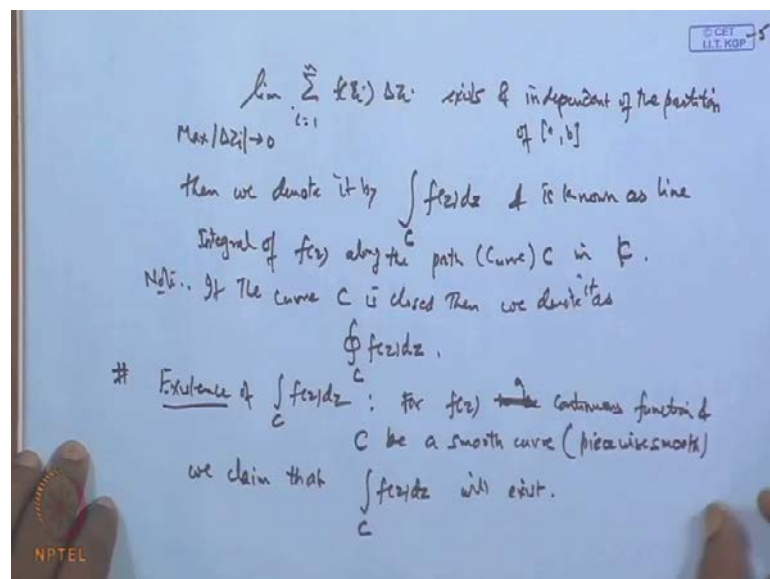 © CET
I.I.T. KGP
-5
lim ∑ f(ξi) Δzi exists & independent of the partition
i=1 n
Max|Δzi|→0 of [a,b]
then we denote it by ∫ f(z)dz & is known as line
C
Integral of f(z) along the path (Curve) C in ₵.
Note.. If The curve C is closed Then we denote it as
∮ f(z)dz.
C
# Existence of ∫ f(z)dz : For f(z) a continuous function &
C
C be a smooth curve (piecewise smooth)
we claim that ∫ f(z)dz will exist.
C
NPTEL